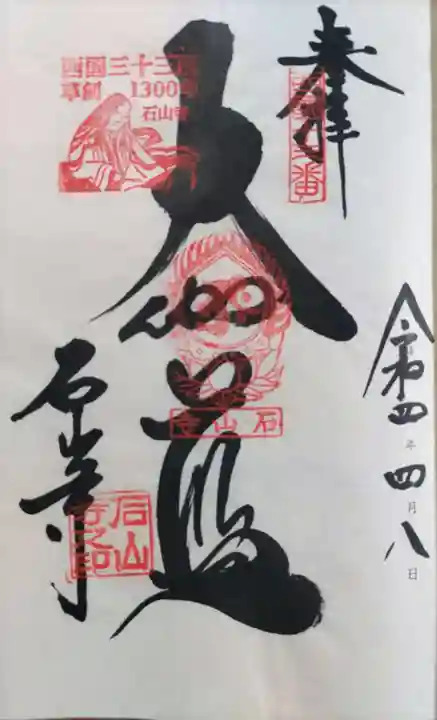 奉拝
西国十三番
大伽藍
石山寺
令和四年四月八日
西国三十三所
草創 1300年
石山寺
石山寺
石山寺之印